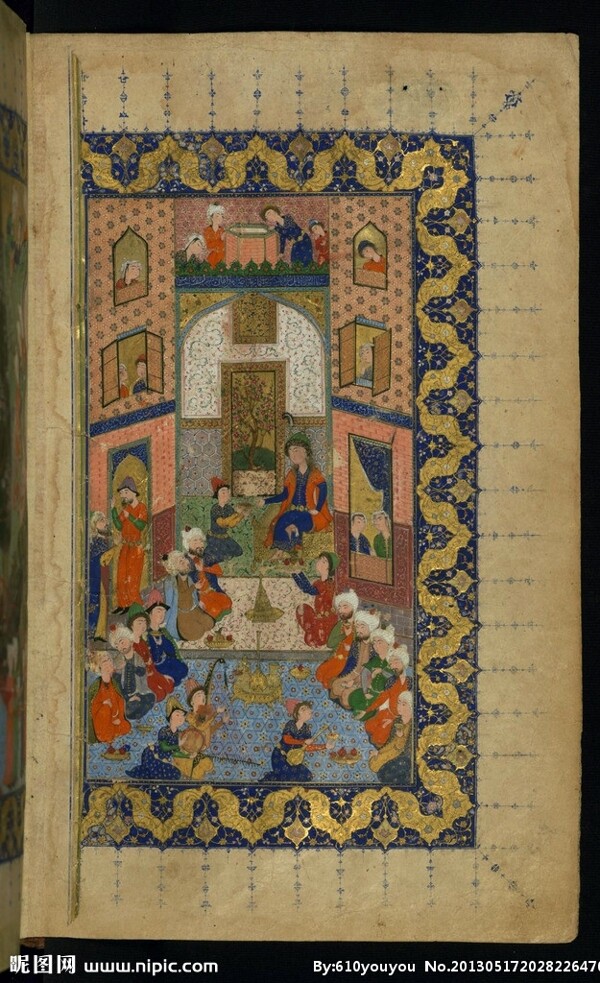 昵图网 www.nipic.com
By:610youyou No.20130517202822647